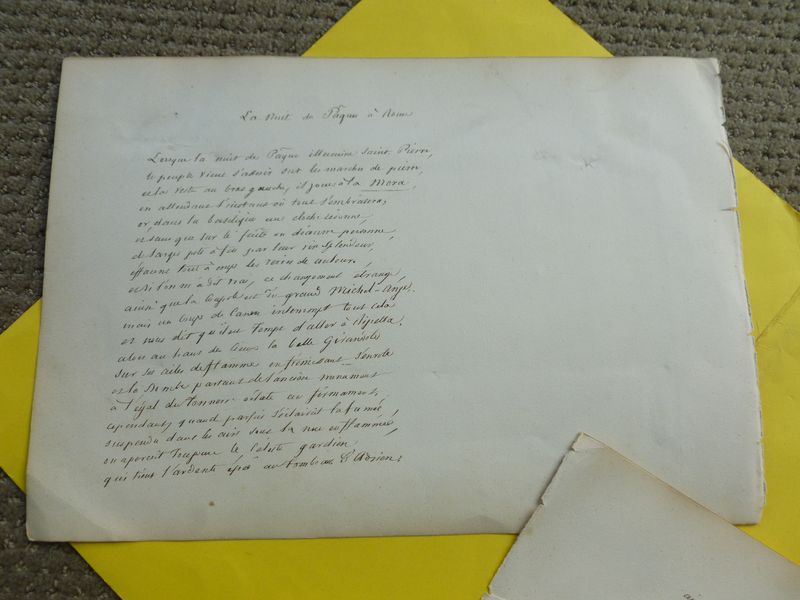 La Nuit de Pâque à Rome
Lorsque la nuit de Pâque illumine Saint Pierre,
le peuple vient s'asseoir sur les marches de pierre,
et la veste au bras gauche, il joue à la Mora,
en attendant l'instant où tout s'embrasera,
or, dans la basilique une cloche résonne,
et sans que sur le faîte on découvre personne,
de larges pots à feu par leur vive splendeur,
effacent tout à coup les de
et si l'on m'a dit vrai, ce changement étrange,
ainsi que la Coupole est du grand Michel-Ange,
mais un coup de Canon interrompt tout cela
et nous dit qu'il est temps d'aller à Ripetta.
alors au haut des Cieux la belle Girandole
sur ses ailes de flamme en frémissant s'envole
et la Bombe partant de l'ancien monument
à l'égal du tonnerre éclate au firmament,
cependant, quand parfois s'éclaircit la fumée,
suspendu dans les airs sous la nue enflammée,
on aperçoit le Céleste gardien
qui tient l'ardente épée au tombeau d'Adrien.